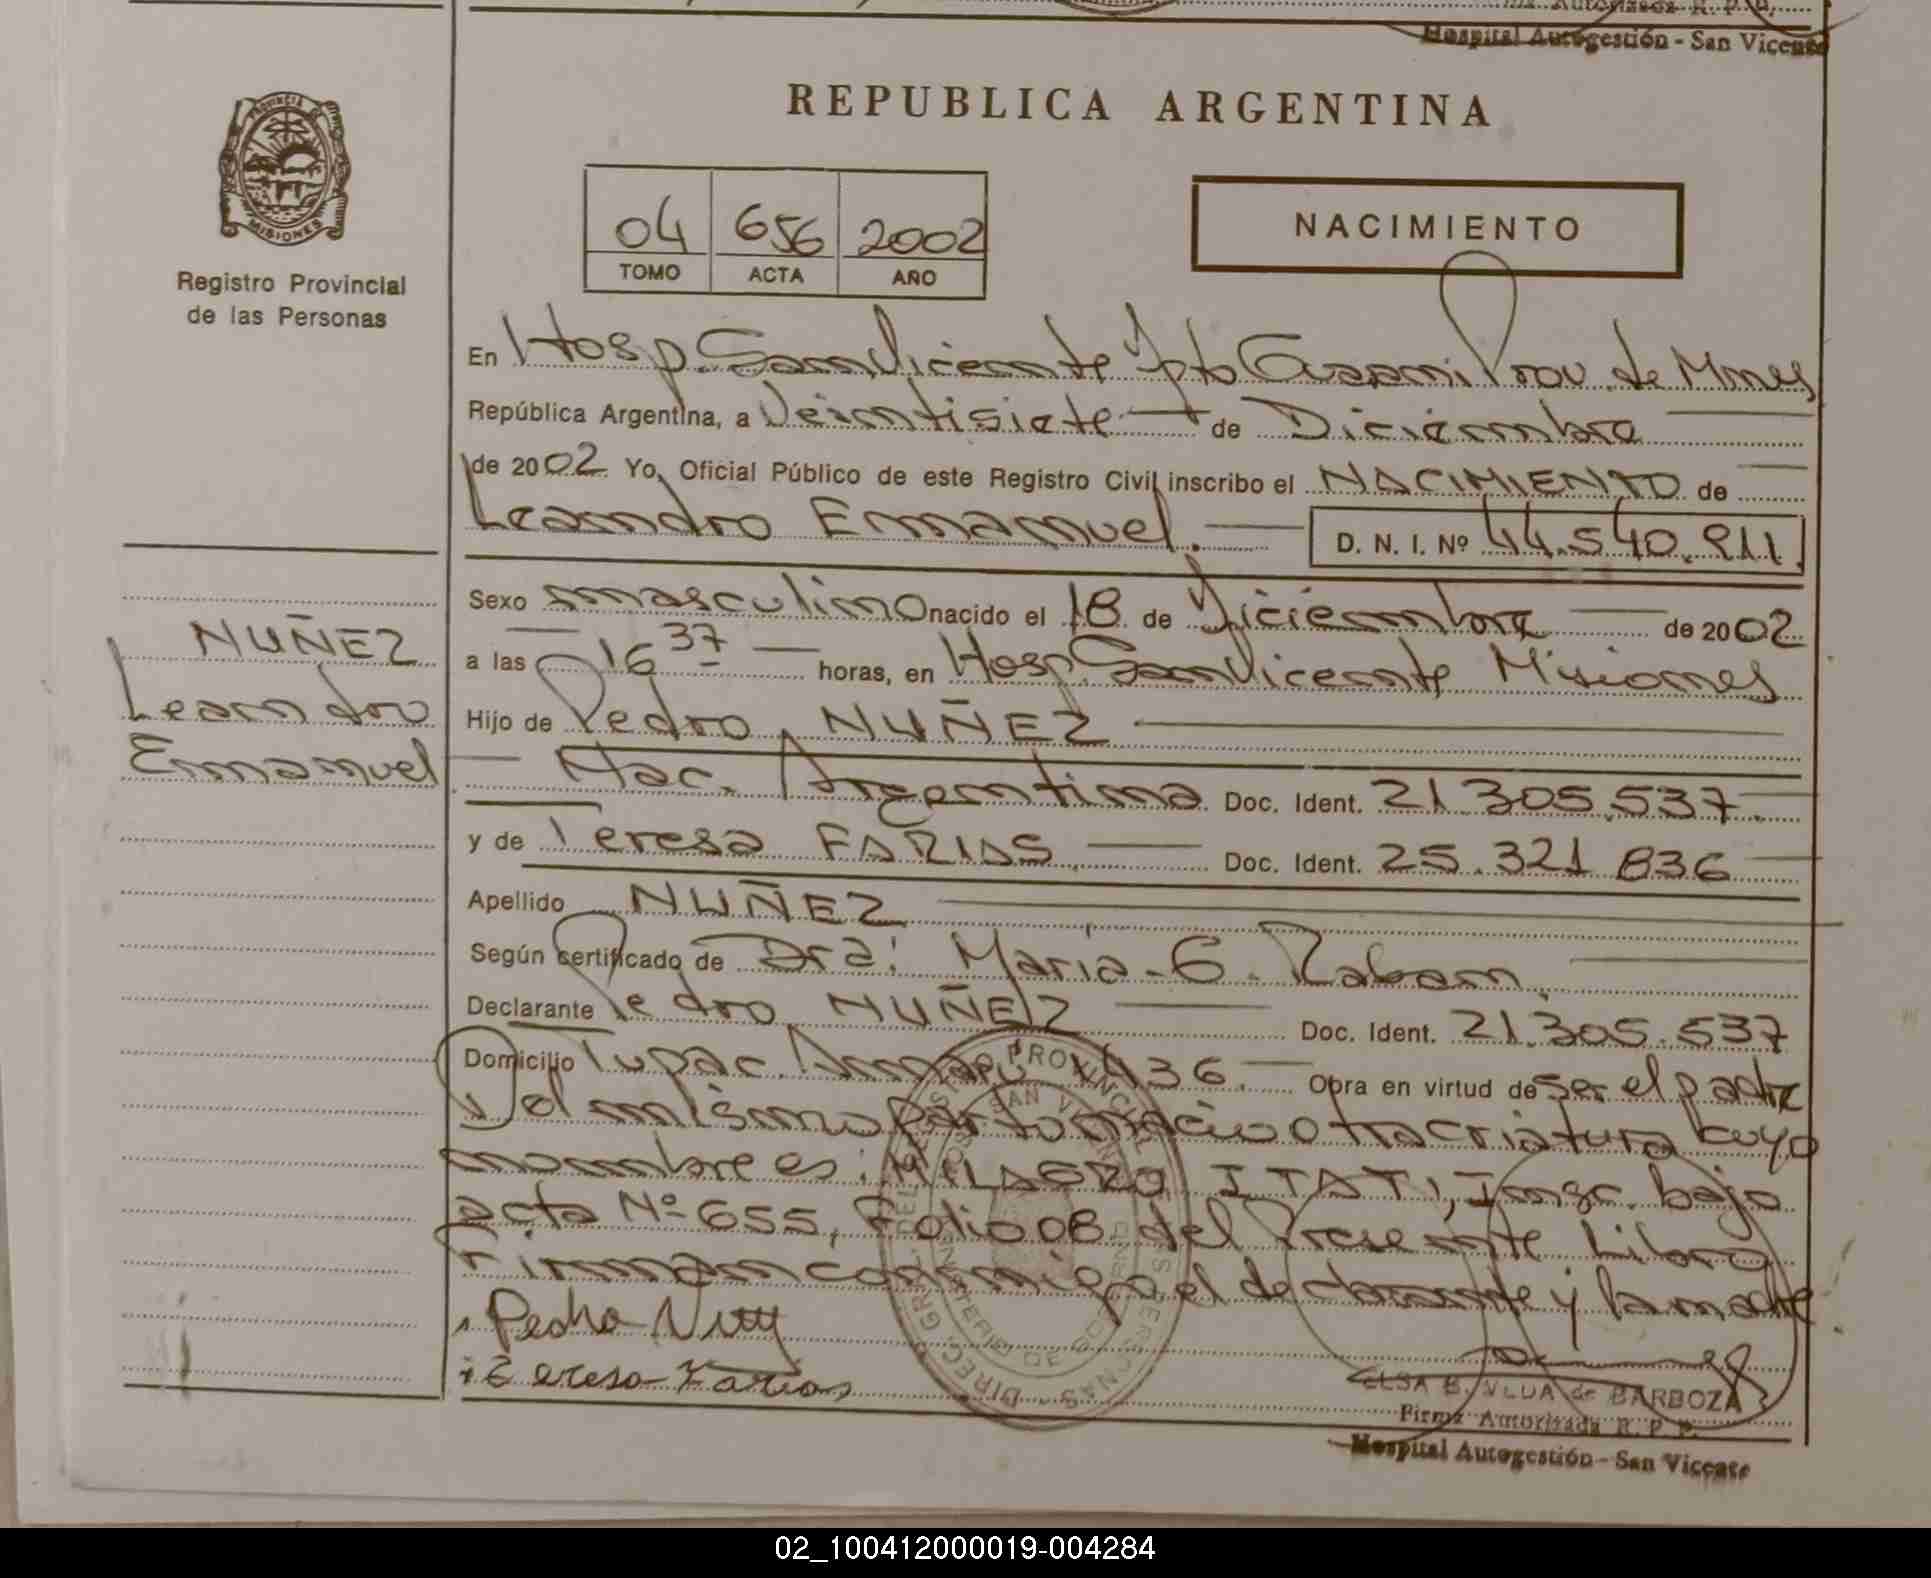 Hospital Autogestión - San Vicente
REPUBLICA ARGENTINA
PROVINCIA
MISIONES
Registro Provincial
de las Personas
04 656 2002
TOMO ACTA AÑO
NACIMIENTO
En Hosp. San Vicente Dpto Guarani Prov. de Mnes
República Argentina, a Veintisiete de Diciembre
de 2002 Yo, Oficial Público de este Registro Civil inscribo el NACIMIENTO de
Leandro Emmanuel. D. N. I. Nº 44.540.911.
Sexo masculino nacido el 18 de Diciembre de 2002
a las 16 37 horas, en Hosp. San Vicente Misiones
Hijo de Pedro NUÑEZ
Nac. Argentina Doc. Ident. 21.305.537
y de Teresa FARIAS Doc. Ident. 25.321.836
NUÑEZ
Leandro
Emmanuel
Apellido NUÑEZ
Según certificado de Dra: Maria G. Raban
Declarante Pedro NUÑEZ Doc. Ident. 21.305.537
Domicilio Tupac Amaru 436. Obra en virtud de Ser el padre
Del mismo parto nacio otra criatura cuyo
nombre es: MILAGRO ITATI, Insc. bajo
acta Nº 655, Folio 08 del Presente Libro
Firman conmigo el declarante y la madre
Pedro
Teresa Farias
ELSA B. VEUA de BARBOZA
Firma Autorizada R. P. P.
Hospital Autogestión - San Vicente
02_100412000019-004284